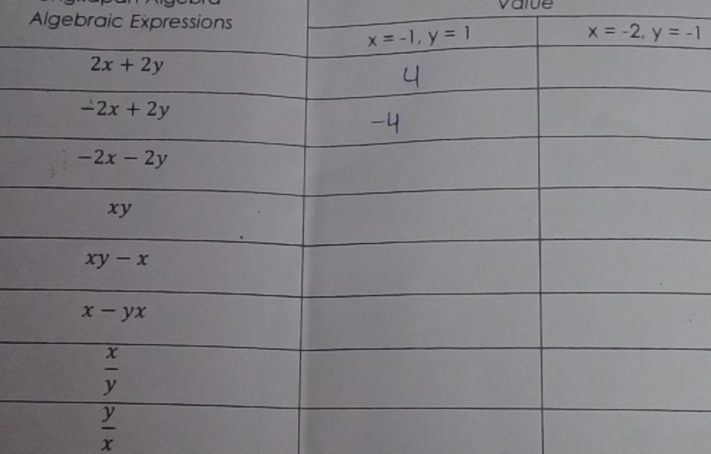 Algebra
Value
Algebraic Expressions
x = -1, y = 1
x = -2, y = -1
2x + 2y
4
-2x + 2y
-4
-2x - 2y
xy
xy - x
x - yx
x
y
y
x